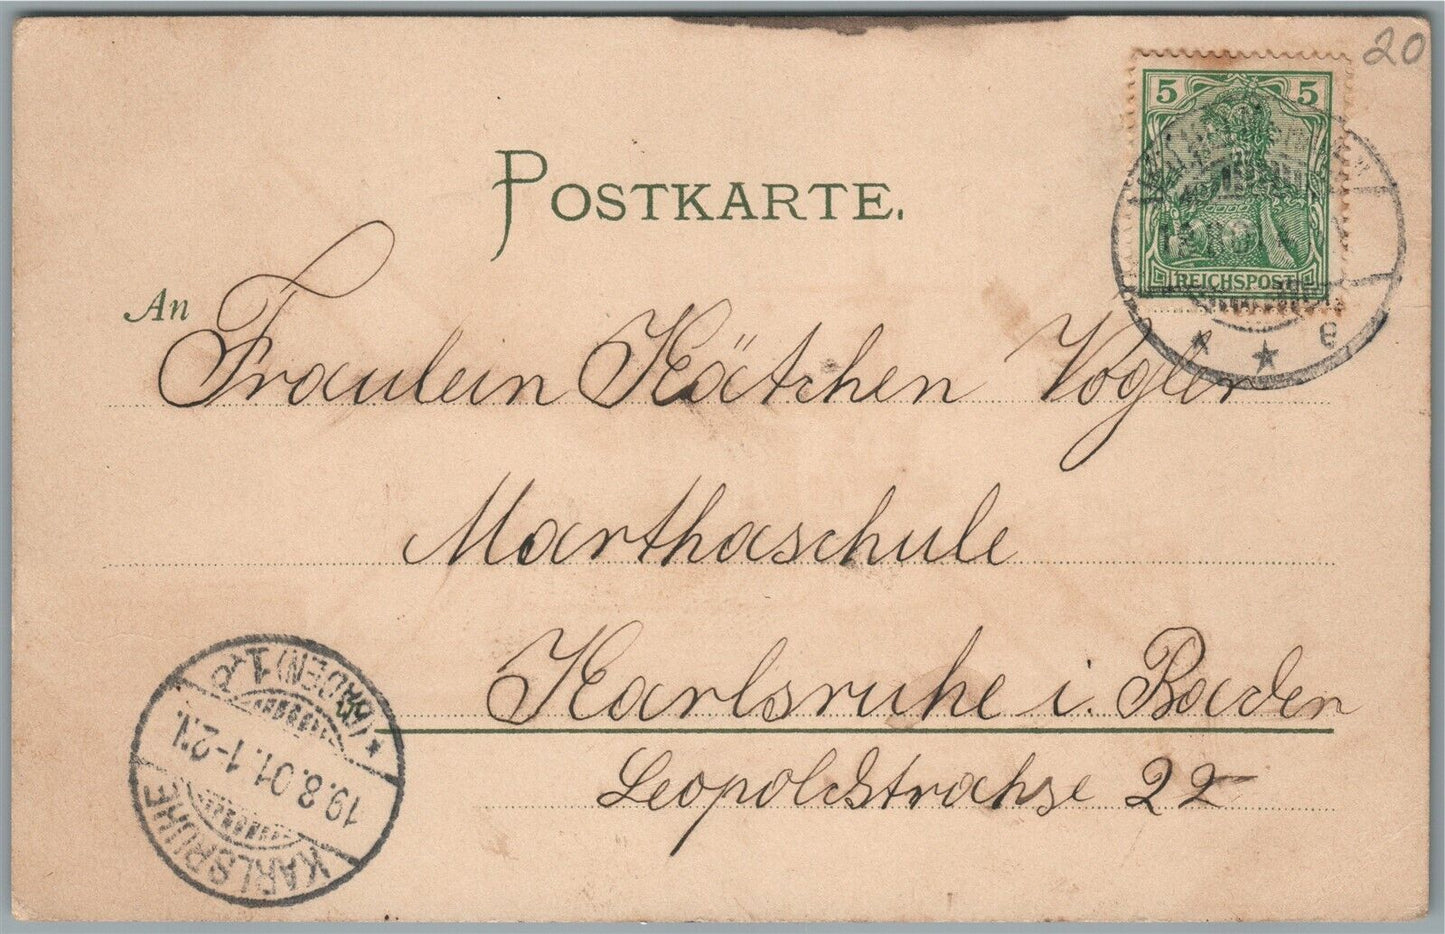 20
5 5
REICHSPOST
POSTKARTE.
An
Fräulein Kätchen Vogler
Marthaschule
Karlsruhe i. Baden
Leopoldstrahse 22
KARLSRUHE (BADEN) 1.
19.8.01.1-2N.
* * e